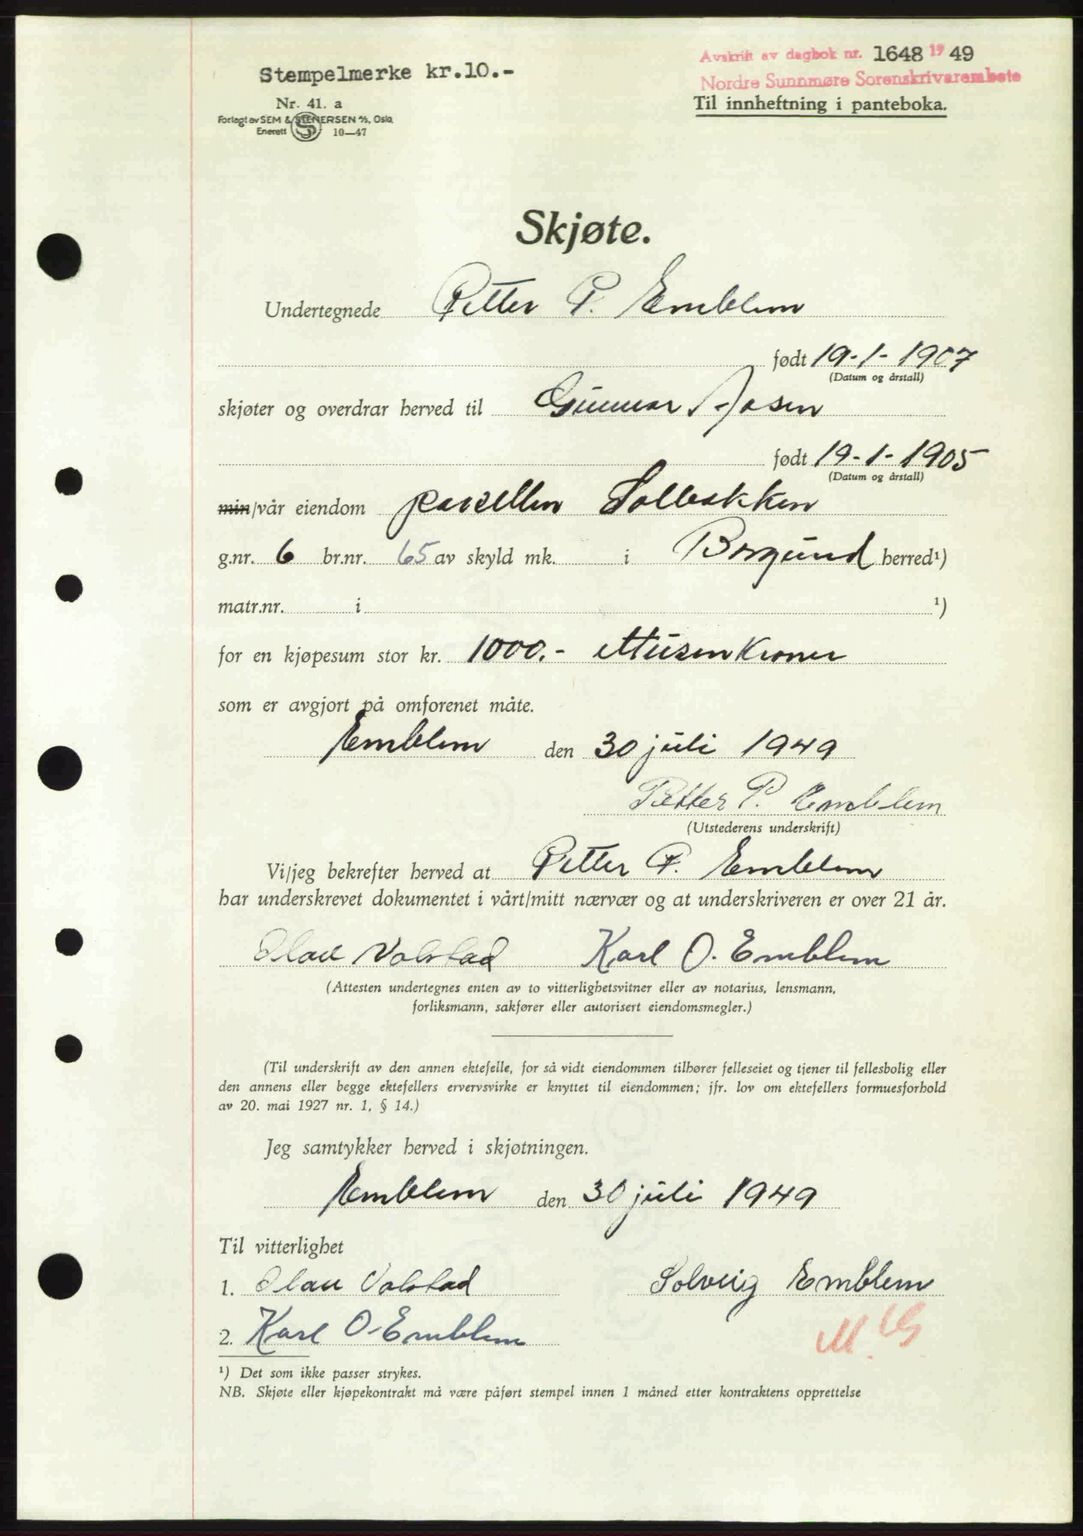 Stempelmerke kr.10.-
Nr. 41. a
Forlagt av SEM & STENERSEN A/S, Oslo
Enerett 10—47
Avskrift av dagbok nr. 1648 19 49
Nordre Sunnmøre Sorenskriverembete
Til innheftning i panteboka.
Skjøte.
Undertegnede Petter P. Emblem
født 19-1-1907
(Datum og årstall)
skjøter og overdrar herved til Gunnar Aasen
født 19-1-1905
(Datum og årstall)
min/vår eiendom parsellen Solbakken
g.nr. 6 br.nr. 65 av skyld mk. i Borgund herred¹)
matr.nr. i ¹)
for en kjøpesum stor kr. 1000.- ettusen kroner
som er avgjort på omforenet måte.
Emblem den 30 juli 1949
Petter P. Emblem
(Utstederens underskrift)
Vi/jeg bekrefter herved at Petter P. Emblem
har underskrevet dokumentet i vårt/mitt nærvær og at underskriveren er over 21 år.
Olav Valstad Karl O. Emblem
(Attesten undertegnes enten av to vitterlighetsvitner eller av notarius, lensmann,
forliksmann, sakfører eller autorisert eiendomsmegler.)
(Til underskrift av den annen ektefelle, for så vidt eiendommen tilhører felleseiet og tjener til fellesbolig eller
den annens eller begge ektefellers ervervsvirke er knyttet til eiendommen; jfr. lov om ektefellers formuesforhold
av 20. mai 1927 nr. 1, § 14.)
Jeg samtykker herved i skjøtningen.
Emblem den 30 juli 1949
Til vitterlighet
1. Olav Valstad Solveig Emblem
2. Karl O. Emblem
¹) Det som ikke passer strykes.
NB. Skjøte eller kjøpekontrakt må være påført stempel innen 1 måned etter kontraktens opprettelse